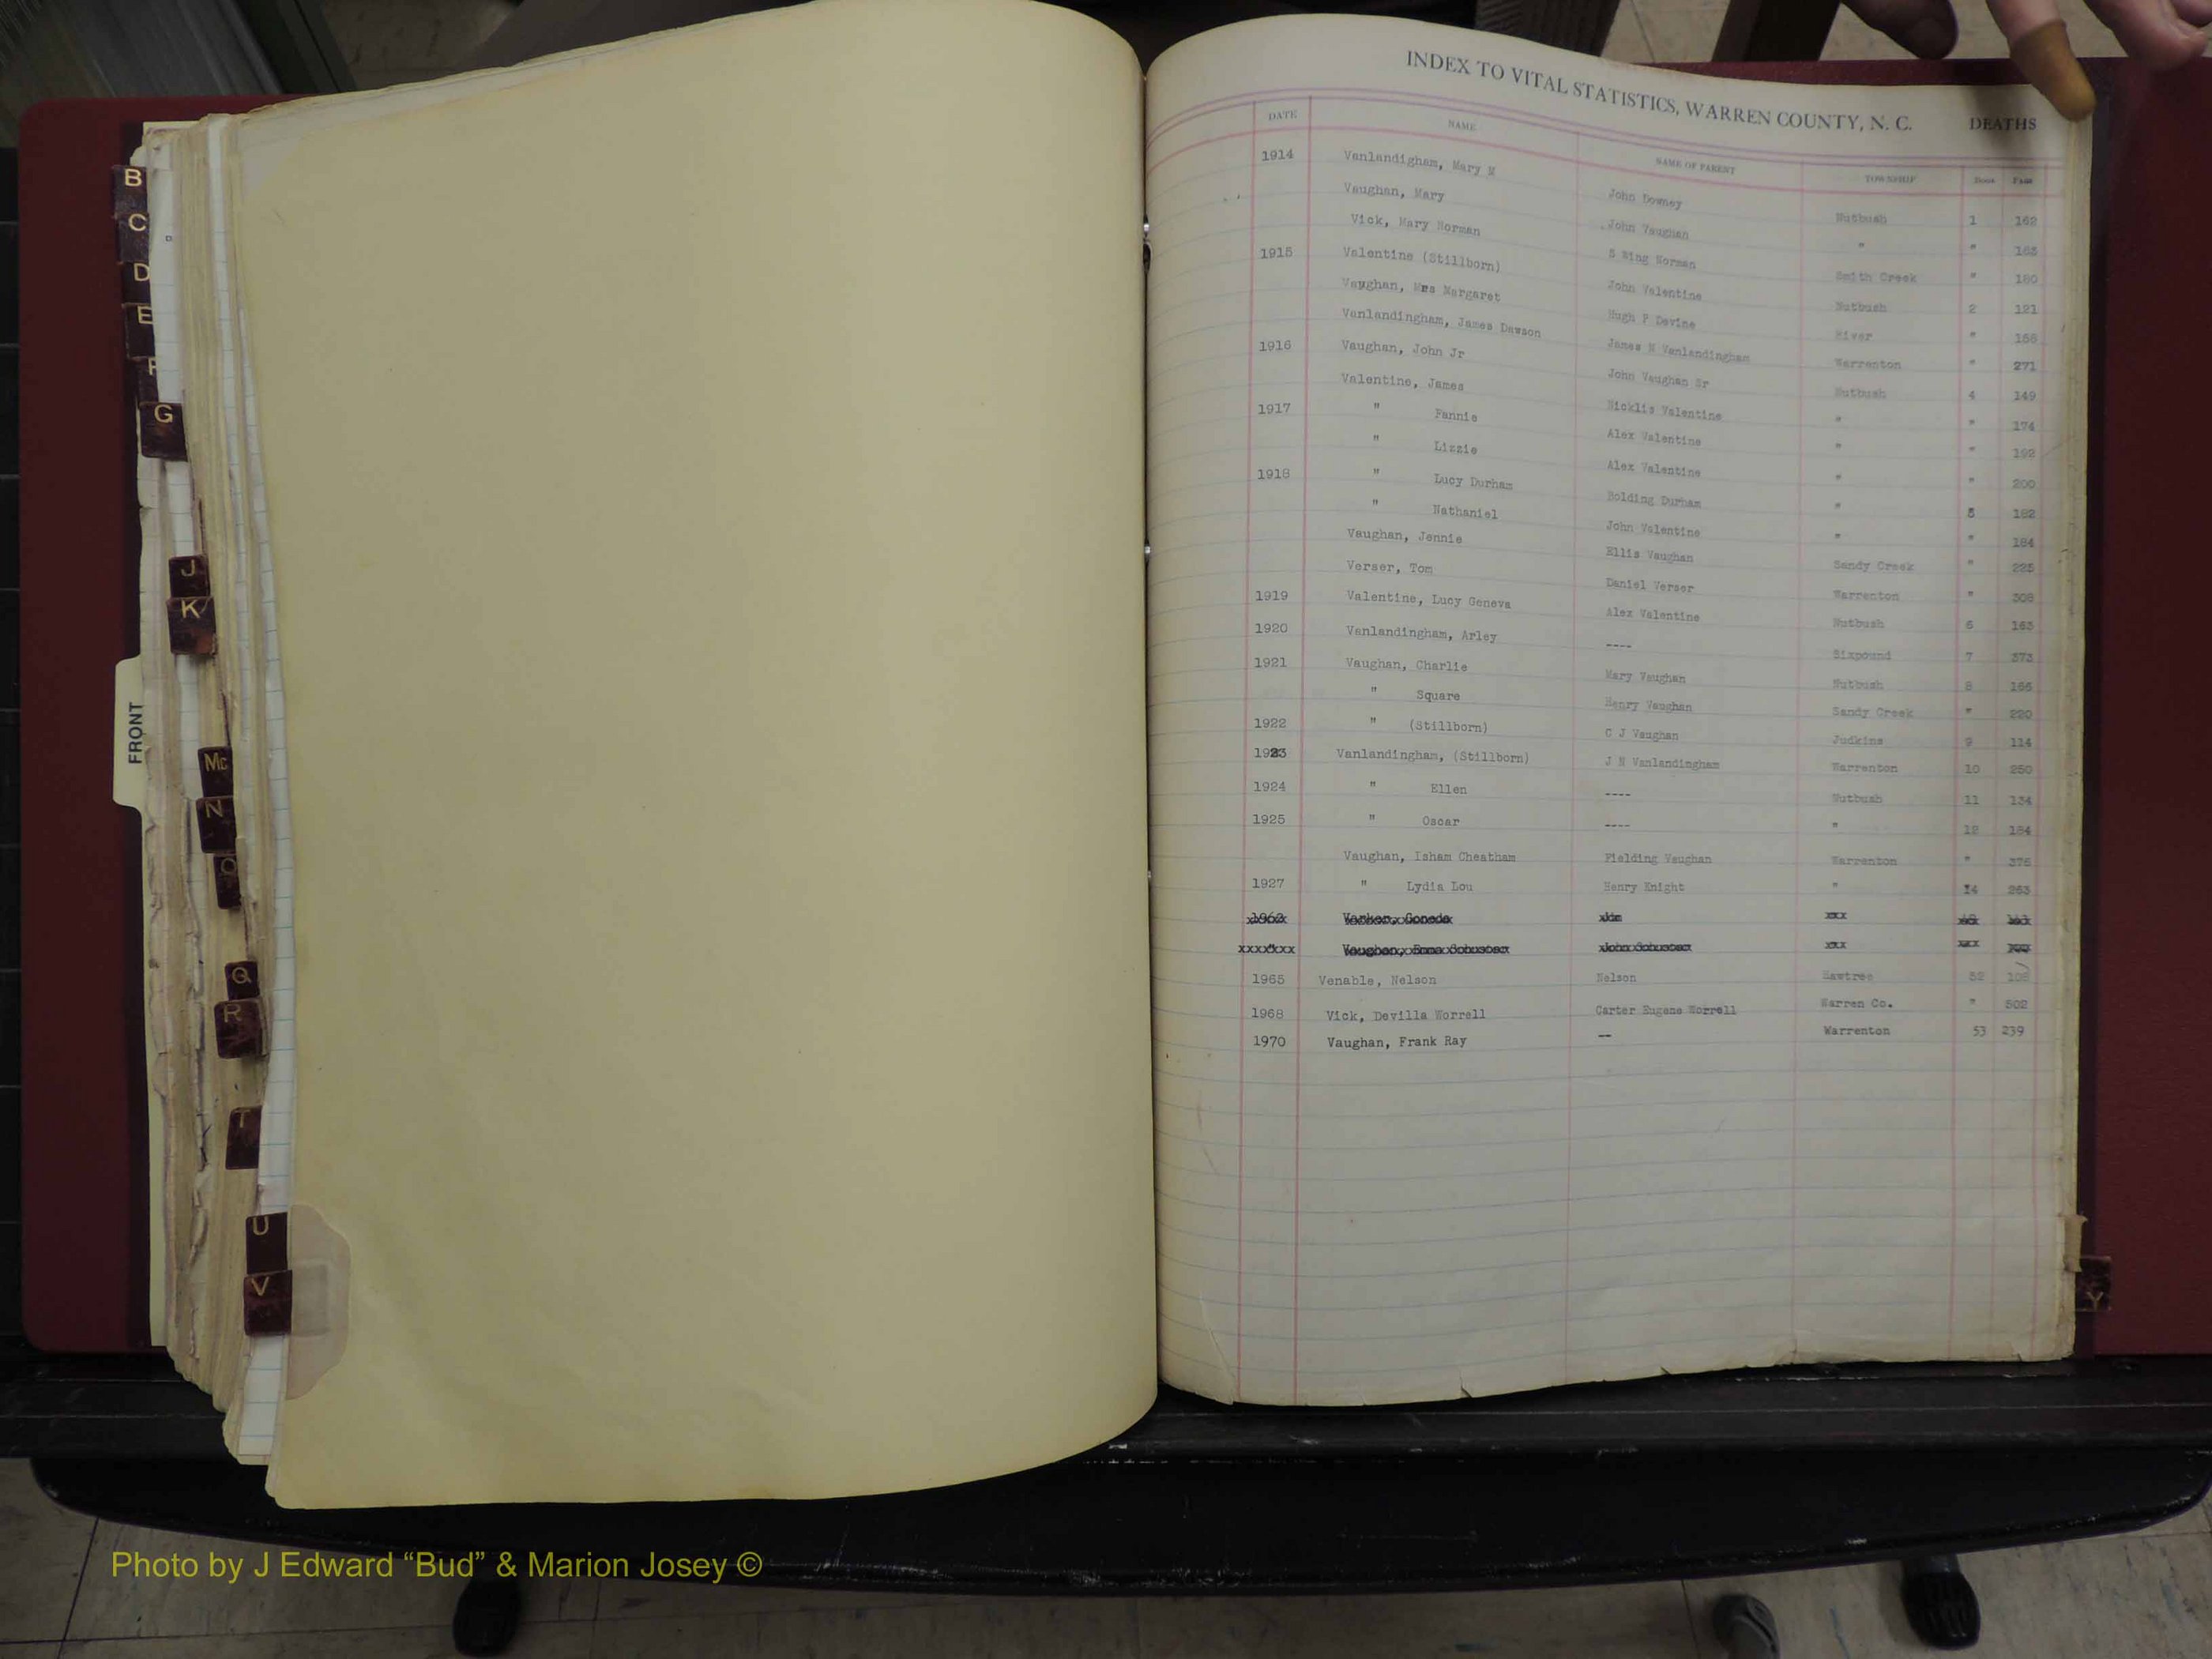 B
C
D
E
F
G
J
K
FRONT
Mc
N
O
Q
R
T
U
V
Y
INDEX TO VITAL STATISTICS, WARREN COUNTY, N. C. DEATHS
DATE NAME NAME OF PARENT TOWNSHIP Book Page
1914 Vanlandigham, Mary M John Downey Nutbush 1 162
Vaughan, Mary John Vaughan " " 163
Vick, Mary Norman S King Norman Smith Creek " 180
1915 Valentine (Stillborn) John Valentine Nutbush 2 121
Vaughan, Mrs Margaret Hugh P Devine River " 156
Vanlandingham, James Dawson James N Vanlandingham Warrenton " 271
1916 Vaughan, John Jr John Vaughan Sr Nutbush 4 149
Valentine, James Nicklis Valentine " " 174
1917 " Fannie Alex Valentine " " 192
" Lizzie Alex Valentine " " 200
1918 " Lucy Durham Bolding Durham " 5 182
" Nathaniel John Valentine " " 184
Vaughan, Jennie Ellis Vaughan Sandy Creek " 225
Verser, Tom Daniel Verser Warrenton " 308
1919 Valentine, Lucy Geneva Alex Valentine Nutbush 6 163
1920 Vanlandingham, Arley ---- Sixpound 7 373
1921 Vaughan, Charlie Mary Vaughan Nutbush 8 166
" Square Henry Vaughan Sandy Creek " 220
1922 " (Stillborn) C J Vaughan Judkins 9 114
1923 Vanlandingham, (Stillborn) J N Vanlandingham Warrenton 10 250
1924 " Ellen ---- Nutbush 11 134
1925 " Oscar ---- " 12 184
Vaughan, Isham Cheatham Fielding Vaughan Warrenton " 376
1927 " Lydia Lou Henry Knight " 14 263
1965 Venable, Nelson Nelson Hawtree 52 102
1968 Vick, Devilla Worrell Carter Eugene Worrell Warren Co. " 502
1970 Vaughan, Frank Ray -- Warrenton 53 239
Photo by J Edward “Bud” & Marion Josey ©